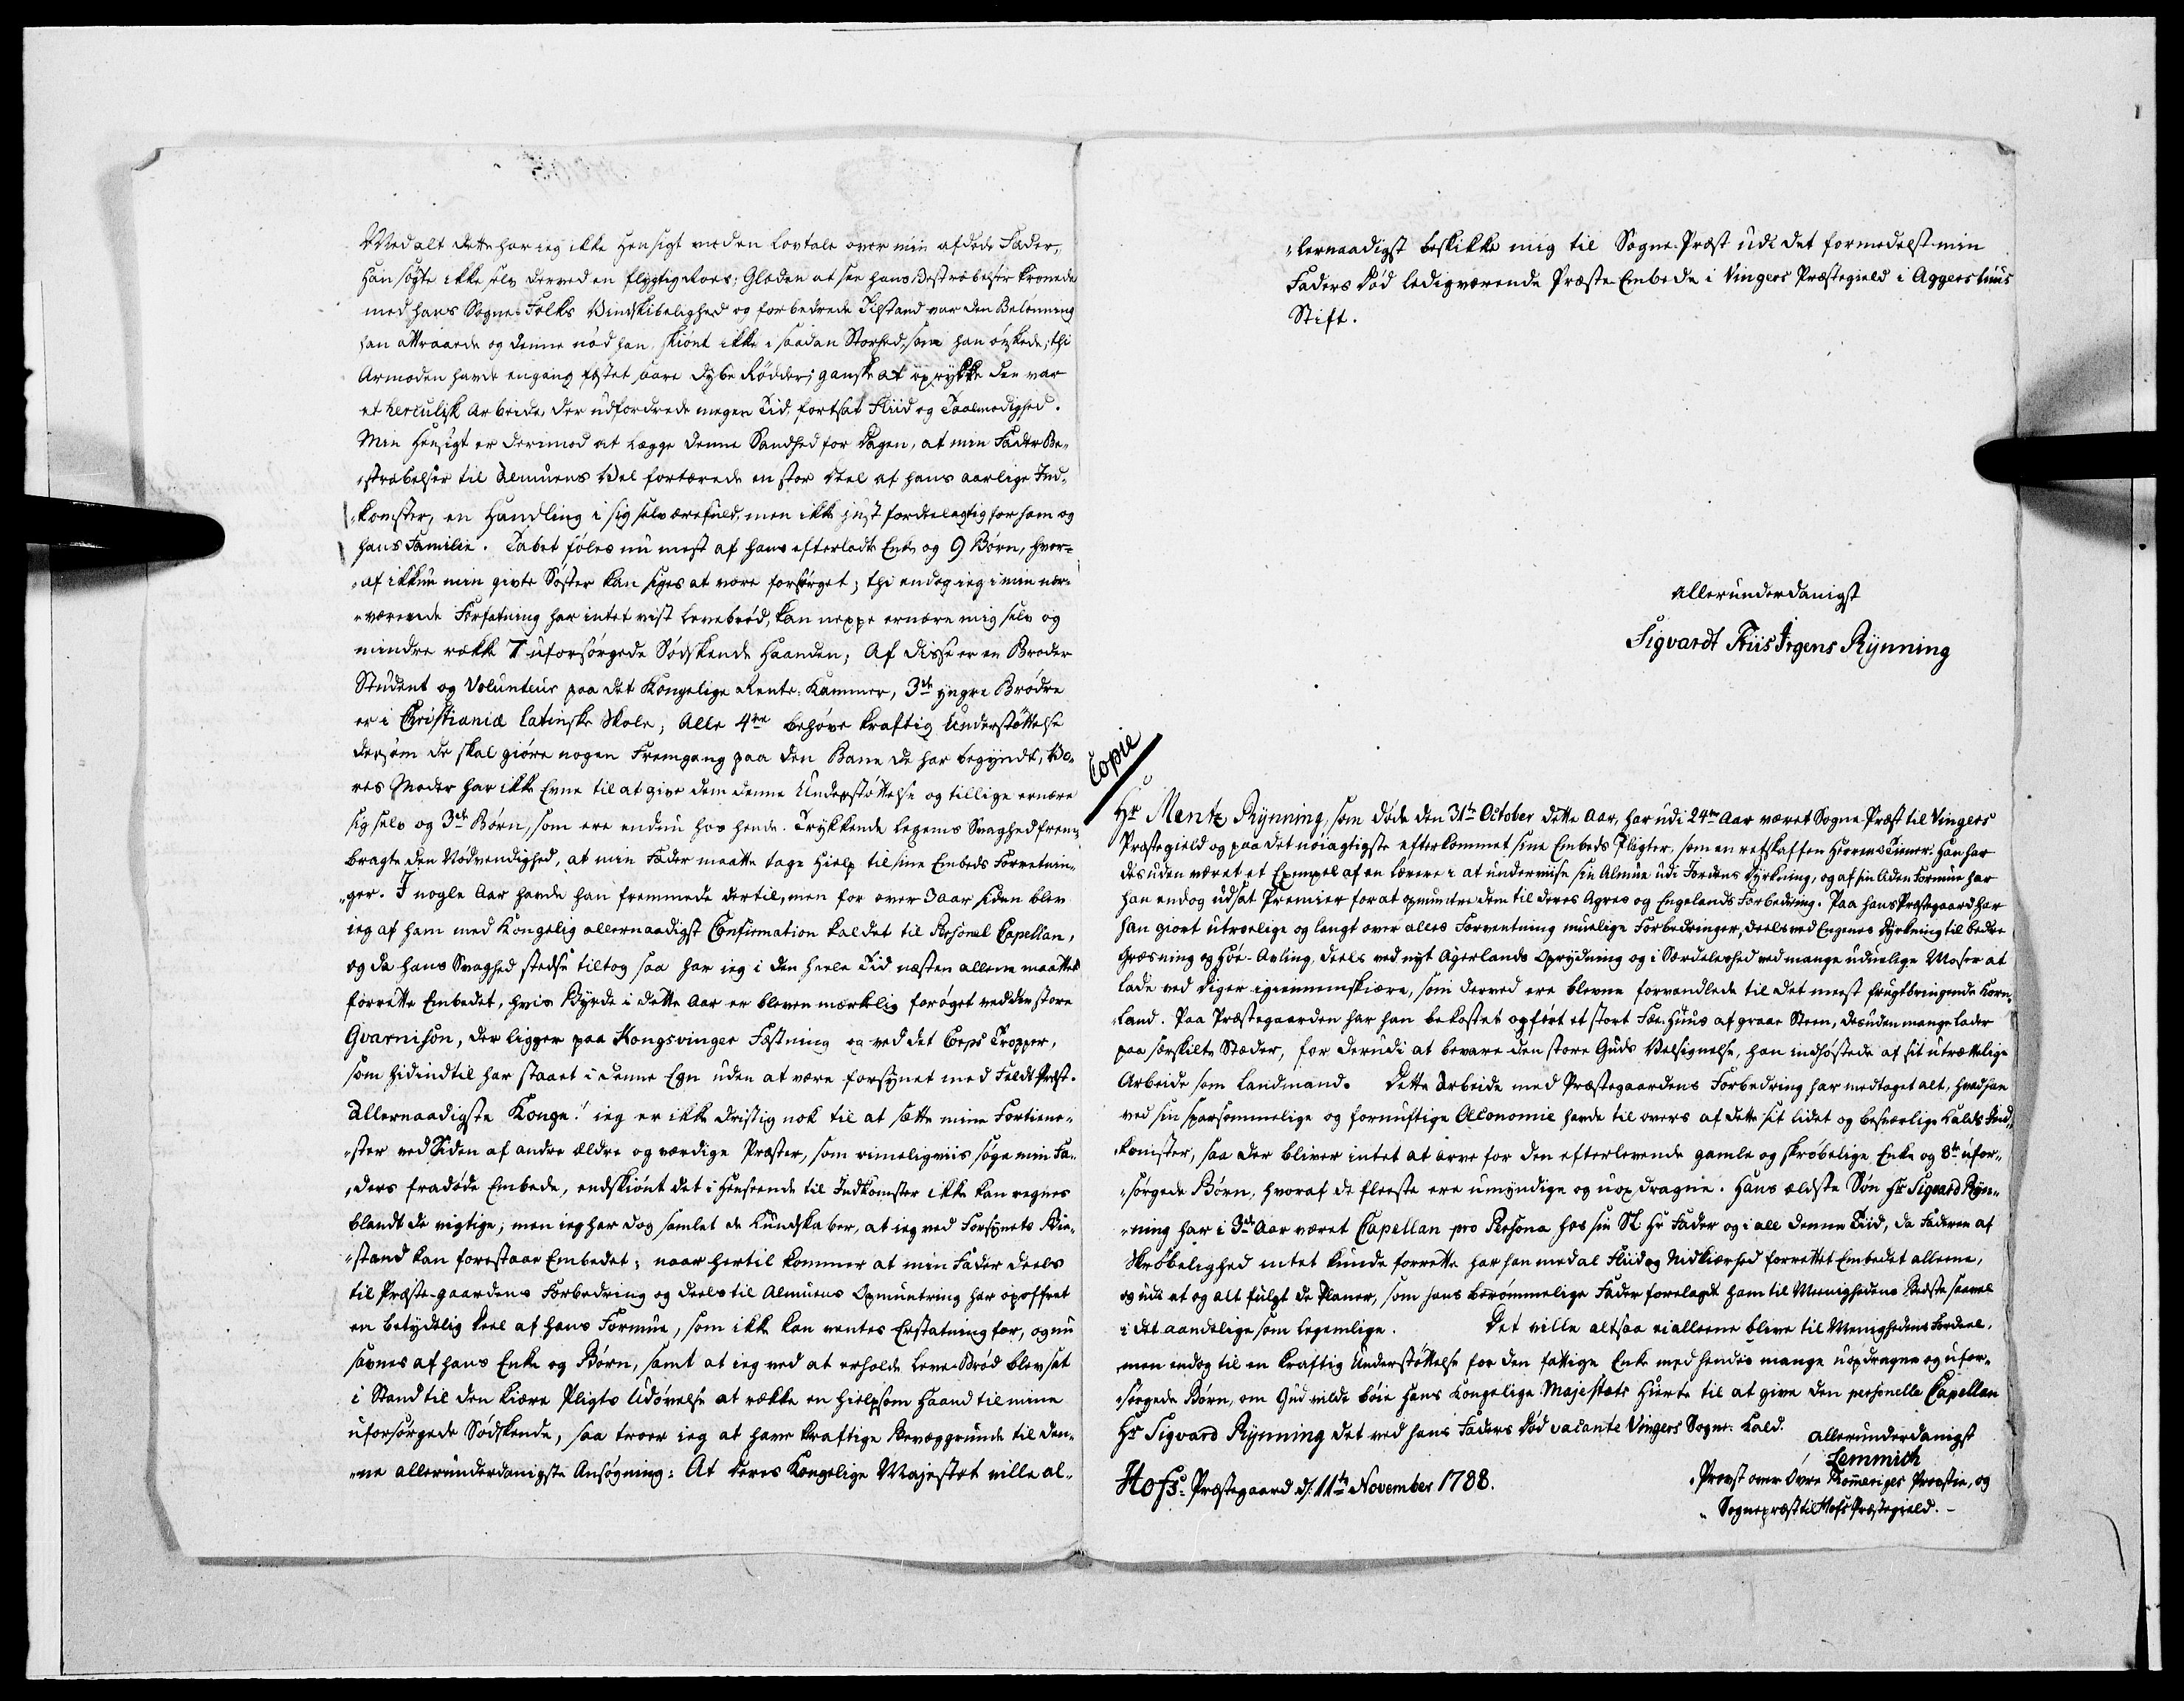 Med alt dette har ieg ikke Hensigt med en Lovtale over min afdøde Fader,
Han søgte ikke selv derved en flygtig Roes; Glæden at see hans Bestræbelser kronede
med hans Sogne-Folks Vindskibelighed og forbedrede Tilstand var den Belønning
han attraaede og denne nød han, skiønt ikke i saadan Storhed, som han ønskede; thi
Armoden havde engang fæstet saare dybe Rødder; ganske at oprykke den var
et herculisk Arbeide, der udfordrede megen Tid, fortsat Fliid og Taalmodighed.
Min Hensigt er derimod at lægge denne Sandhed for Dagen, at min Faders Be-
stræbelser til Almuens Vel fortærede en stor Deel af hans aarlige Ind-
komster, en Handling i sig selv ærefuld, men ikke just fordeelagtig for ham og
hans Familie. Tabet føles nu mest af hans efterladte Enke og 9 Børn, hvor-
af ikkun min givte Søster kan siges at være forsørget; thi endog ieg i min nær-
værende Forfatning har intet vist Levebrød, kan neppe ernære mig selv og
mindre række 7 uforsørgede Sødskende Haanden; Af disse er en Broder
Student og Volunteur paa det Kongelige Rente-Kammer, 3de yngre Brødre
er i Christianiæ latinske Skole; Alle 4re behøve kraftig Understøttelse
dersom de skal giøre nogen Fremgang paa den Bane de har begyndt, Vo-
res Moder har ikke Evne til at give dem denne Understøttelse og tillige ernære
sig selv og 3de Børn, som ere endnu hos hende. Trykkende Legems Svaghed frem-
bragte den Nødvendighed, at min Fader maatte tage Hielp til sine Embeds Forretnin-
ger. I nogle Aar havde han fremmede dertil, men for over 3 Aar siden blev
ieg af ham med Kongelig allernaadigst Confirmation kaldet til Personel Capellan,
og da hans Svaghed stedse tiltog saa har ieg i den heele Tid næsten allene maattet
forrette Embedet, hvis Byrde i dette Aar er bleven mærkelig forøget ved den store
Gvarnison, der ligger paa Kongsvinger Fæstning og ved det Corps Tropper,
som hidindtil har staaet i denne Egn uden at være forsynet med Feldt Præst.
Allernaadigste Konge! ieg er ikke dristig nok til at sætte mine Fortiene-
ster ved Siden af andre ældre og værdige Præster, som rimeligviis søge min Fa-
ders fradøde Embede, endskiønt det i Henseende til Indkomster ikke kan regnes
blandt de vigtige; men ieg har dog samlet de Kundskaber, at ieg ved Forsynets Bie-
stand kan forestaae Embedet; naar hertil kommer at min Fader deels
til Præste-gaardens Forbedring og deels til Almuens Opmuntring har opoffret
en betydelig Deel af hans Formue, som ikke kan ventes Erstatning for, og nu
savnes af hans Enke og Børn, samt at ieg ved at erholde Leve-Brød blev sat
i Stand til den kiære Pligts Udøvelse at række en hielpsom Haand til mine
uforsørgede Sødskende, saa troer ieg at have kraftige Bevæggrunde til den-
ne allerunderdanigste Ansøgning: At Deres Kongelige Majestæt ville al-
lernaadigst beskikke mig til Sogne-Præst udi det formedelst min
Faders Død ledigværende Præste-Embede i Vingers Præstegield i Aggershuus
Stift.
Allerunderdanigst
Sigvardt Friis Irgens Rynning
Copie
Hr Mentz Rynning, som døde den 31te October dette Aar, har udi 24re Aar været Sogne-Præst til Vingers
Præstegield og paa det nøiagtigste efterkommet sine Embeds Pligter, som en retskaffen Herrens Tiener. Han har
desuden været et Exempel af en Lærere i at underviise sin Almue udi Jordens Dyrkning, og af sin liden Formue har
han endog udsat Premier for at opmuntre dem til deres Agres og Engelands Forbedring. Paa hans Præstegaard har
han giort utroelige og langt over alles Forventning muelige Forbedringer, deels ved Engenes Dyrkning til bedre
Græsning og Høe-Avling, deels ved nyt Agerlands Oprydning og i Særdeleshed ved mange uduelige Moser at
lade ved Diger igiennemskiære, som derved ere blevne forvandlede til det meest frugtbringende Korn-
land. Paa Præstegaarden har han bekostet opført et stort Fæe-Huus af graae Steen, desuden mange Lader
paa særskilte Stæder, for derudi at bevare den store Guds Velsignelse, han indhøstede af sit utrættelige
Arbeide som Landmand. Dette Arbeide med Præstegaardens Forbedring har medtaget alt, hvad han
ved sin sparsommelige og fornuftige Oeconomie havde til overs af dette sit lidet og besværlige Kalds Ind-
komster, saa der bliver intet at arve for den efterlevende gamle og skrøbelige Enke og 8te ufor-
sørgede Børn, hvoraf de fleeste ere umyndige og uopdragne. Hans ældste Søn Hr Sigvard Ryn-
ning har i 3de Aar været Capellan pro Persona hos sin Sl. Hr Fader og i all denne Tiid, da Faderen af
Skrøbelighed intet kunde forrette har han med al Fliid og Nidkiærhed forrettet Embedet allene,
og udi et og alt fulgt de Planer, som hans berømmelige Fader forelagde ham til Meenighedens Bedste saavel
i det aandelige som legemlige. Det ville altsaa ei alleene blive til Menighedens Fordeel,
men endog til en kraftig Understøttelse for den fattige Enke med hendes mange uopdragne og ufor-
sørgede Børn, om Gud vilde bøie Hans Kongelige Majestæts Hierte til at give den personelle Capellan
Hr Sigvard Rynning det ved hans Faders Død vacante Vingers Sogne-Kald.
Allerunderdanigst
Lemmich
Hofs Præstegaard d: 11te November 1788.
Provst over Øvre Rommeriges Provstie, og
Sognepræst til Hofs Præstegield.